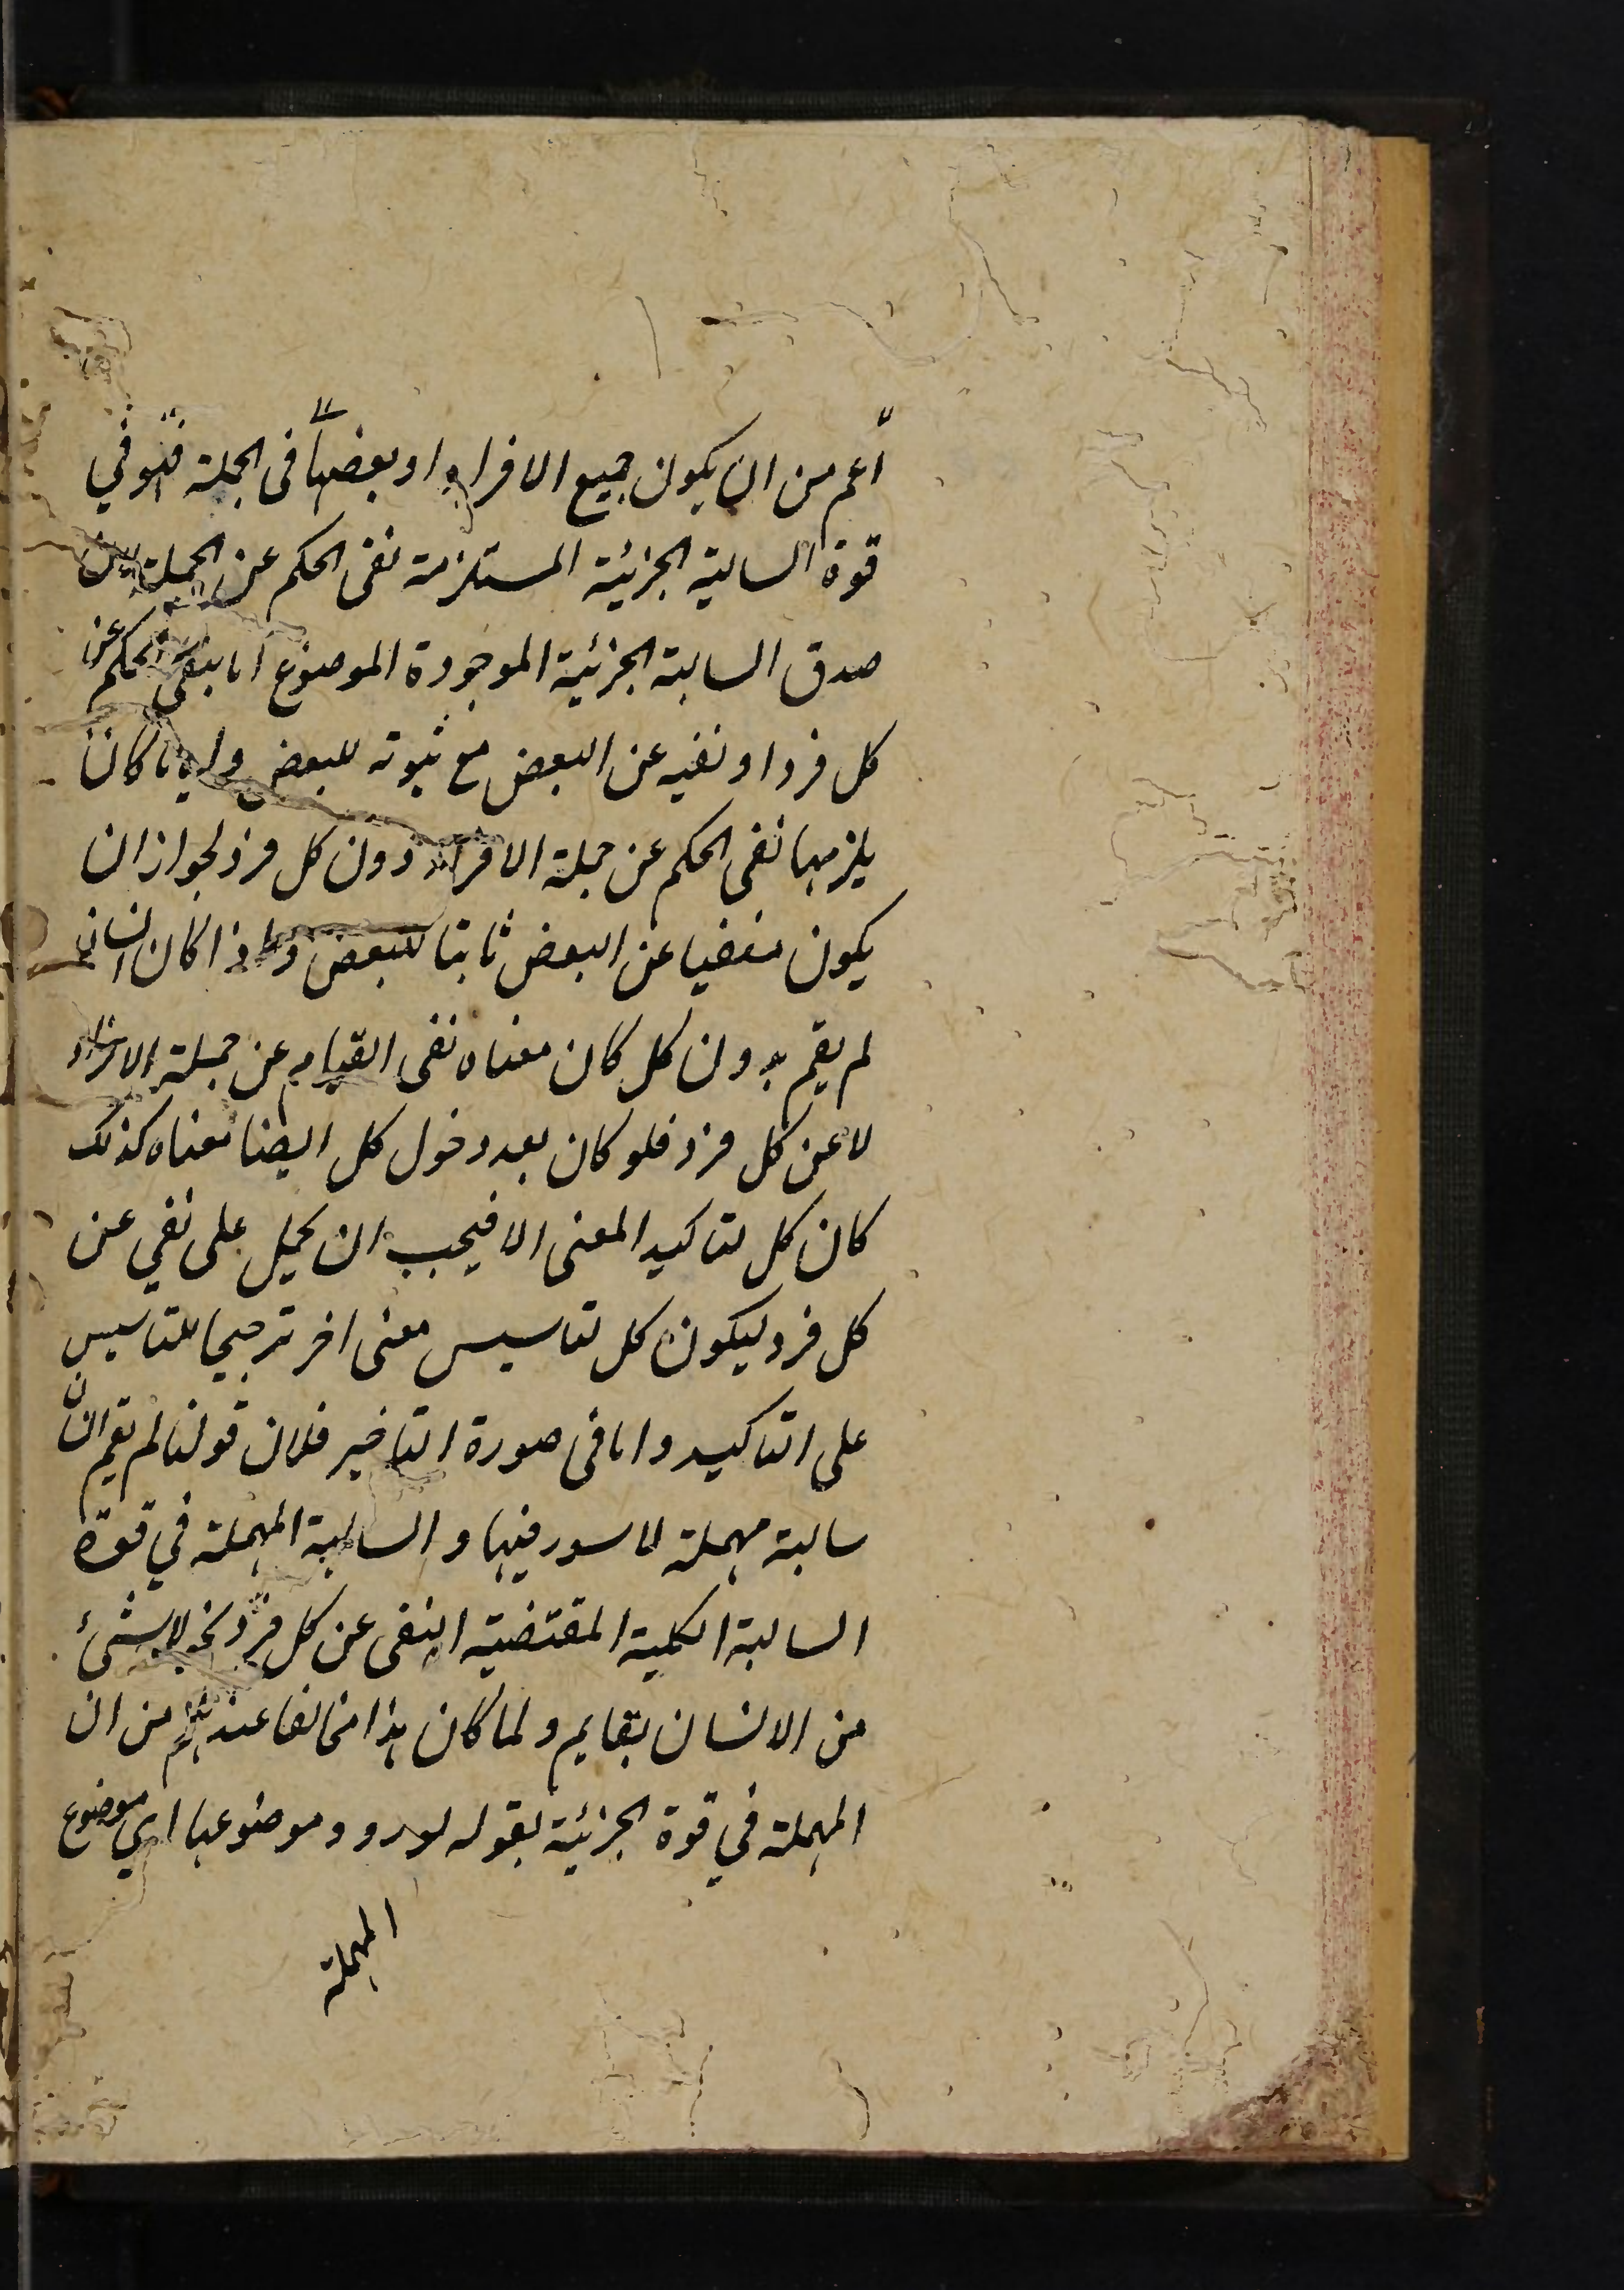 أعم من ان يكون جميع الافراد او بعضها فى الجملة فهو في
قوة السالبة الجزئية المستلزمة نفى الحكم عن الجملة لان
صدق السالبة الجزئية الموجودة الموضوع اما بنفى الحكم عن
كل فرد او نفيه عن البعض مع ثبوته للبعض وايا ما كان
يلزمها نفى الحكم عن جملة الافراد دون كل فرد لجواز ان
يكون منفيا عن البعض ثابتا للبعض واذا كان انسان
لم يقم بدون كل كان معناه نفى القيام عن جملة الافراد
لا عن كل فرد فلو كان بعد دخول كل ايضا معناه كذلك
كان كل لتاكيد المعنى الا فيجب ان يحمل على نفي عن
كل فرد ليكون كل لتاسيس معنى اخر ترجيحا للتاسيس
على التاكيد واما فى صورة التاخير فلان قولنا لم يقم انسان
سالبة مهملة لا سور فيها والسالبة المهملة في قوة
السالبة الكلية المقتضية النفى عن كل فرد نحو لا شئ
من الانسان بقايم ولما كان هذا مخالفا عندهم من ان
المهملة في قوة الجزئية بقوله لورود موضوعها اي موضوع
المهملة